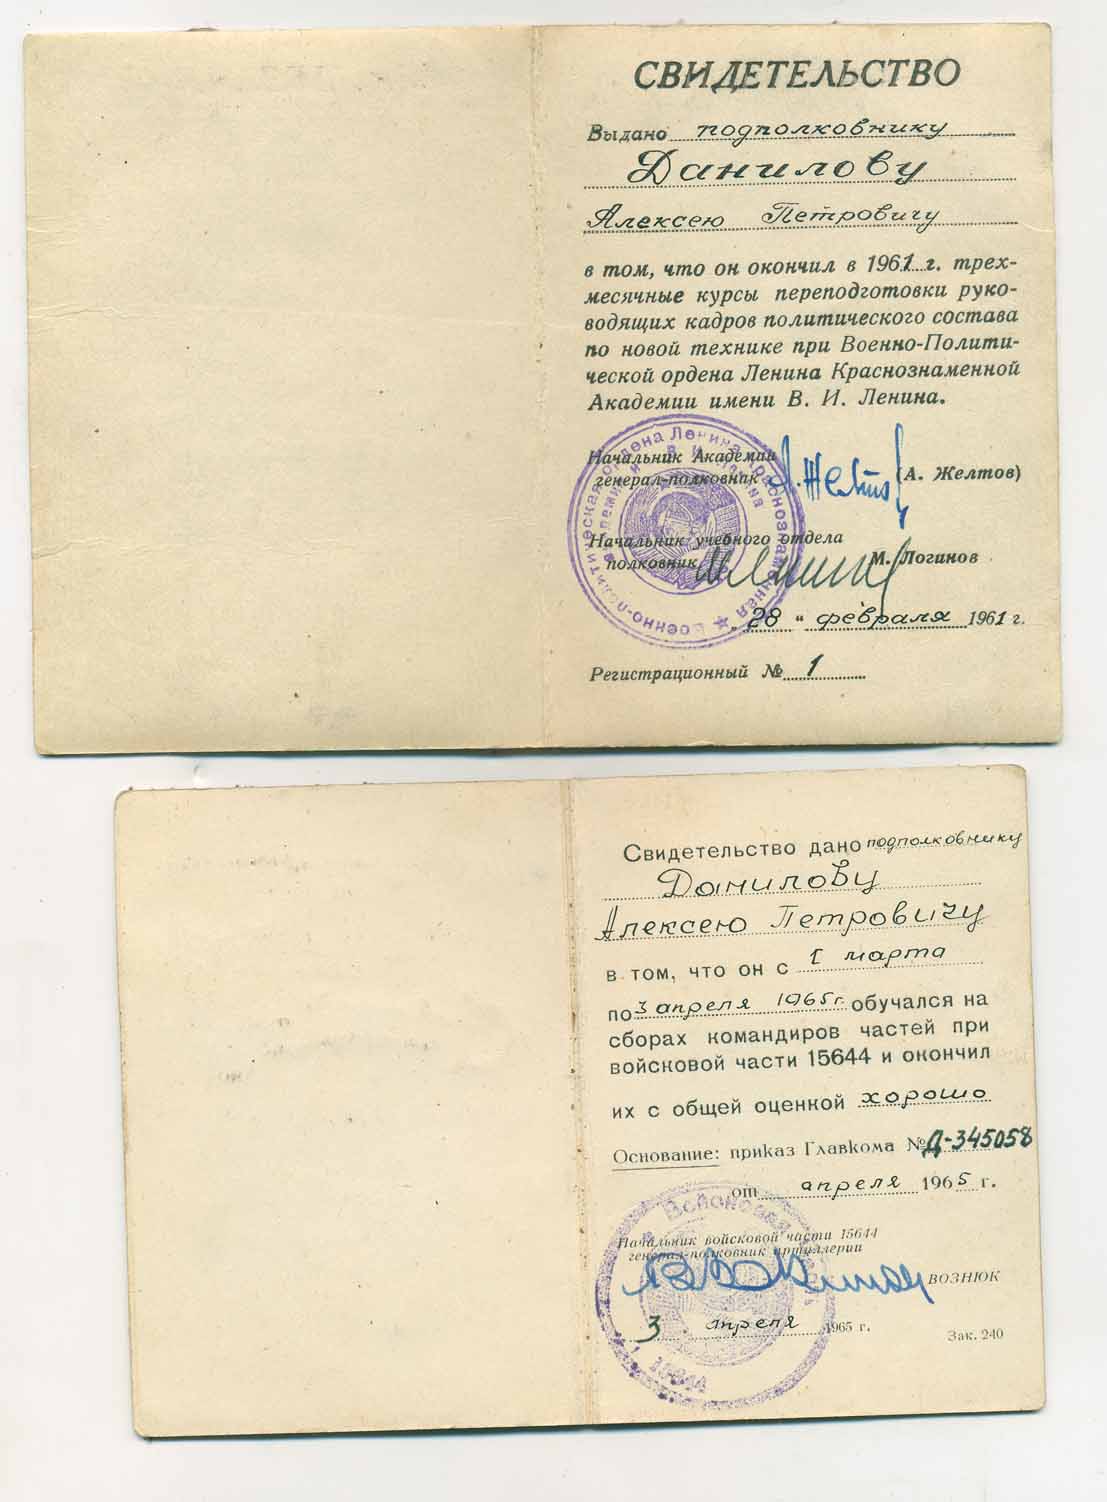 СВИДЕТЕЛЬСТВО
Выдано подполковнику
Данилову
Алексею Петровичу
в том, что он окончил в 1961 г. трех-
месячные курсы переподготовки руко-
водящих кадров политического состава
по новой технике при Военно-Полити-
ческой ордена Ленина Краснознаменной
Академии имени В. И. Ленина.
Начальник Академии
генерал-полковник А. Желтов (А. Желтов)
Начальник учебного отдела
полковник М. Логинов
28 " февраля 1961 г.
Регистрационный № 1
Военно-политическая ордена Ленина Краснознаменная
академия им. В. И. Ленина
Свидетельство дано подполковнику
Данилову
Алексею Петровичу
в том, что он с 1 марта
по 3 апреля 1965г. обучался на
сборах командиров частей при
войсковой части 15644 и окончил
их с общей оценкой хорошо
Основание: приказ Главкома № Д-345058
от апреля 1965 г.
Начальник войсковой части 15644
генерал-полковник артиллерии
ВОЗНЮК
3 апреля 1965 г.
Зак. 240
Войсковая часть
15644